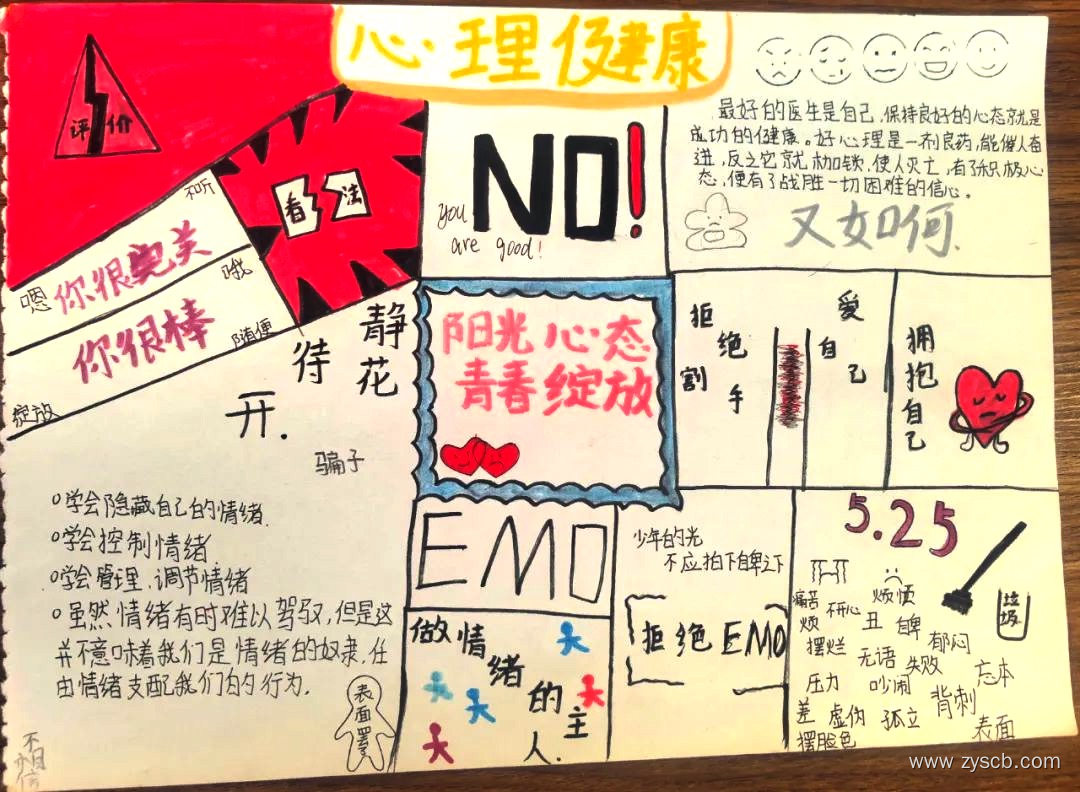 心理健康
评价
看法
不听
嗯
你很完美
哦
你很棒
随便
绽放
静待花开.
骗子
NO!
you
are good!
最好的医生是自己,保持良好的心态就是
成功的健康。好心理是一剂良药,能催人奋
进,反之它就枷锁,使人灭亡,有了积极心
态,便有了战胜一切困难的信心。
又如何.
阳光心态
青春绽放
拒绝割手
爱自己
拥抱自己
学会隐藏自己的情绪.
学会控制情绪.
学会管理.调节情绪
虽然情绪有时难以驾驭,但是这
并不意味着我们是情绪的奴隶,任
由情绪支配我们的行为.
表面
不相信
EMO
做情绪的主人.
少年的光
不应拍下自卑之下
拒绝EMO
5.25
垃圾
痛苦
烦
不开心
烦恼
丑
自卑
摆烂
无语
失败
郁闷
忘本
压力
吵闹
背刺
差
虚伪
孤立
表面
摆脸色
www.zyscb.com